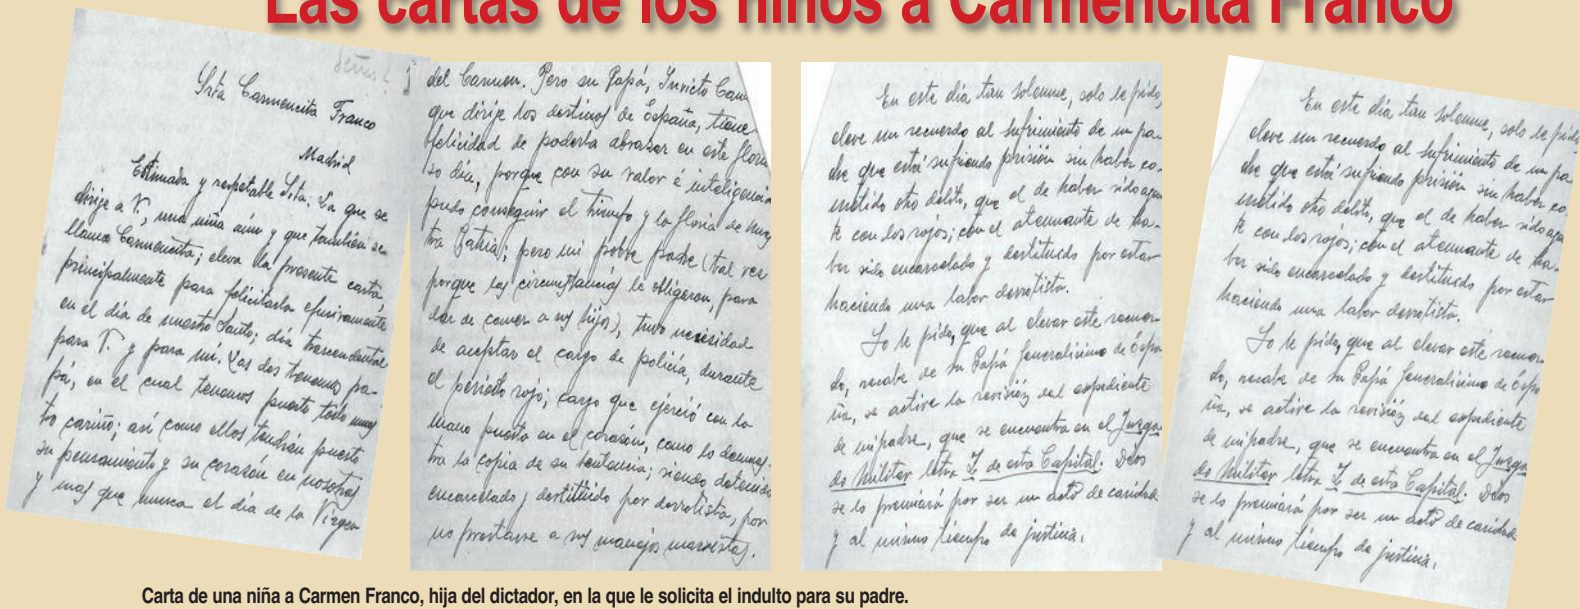 Las cartas de los niños a Carmencita Franco
Srta Carmencita Franco
Madrid
Estimada y respetable Srta: La que se
dirije a V., una niña aún y que también se
llama Carmencita; eleva la presente carta,
principalmente para felicitarla efusivamente
en el día de nuestro Santo; día trascendental
para V. y para mí. Las dos tenemos pa-
pá, en el cual tenemos puesto todo nues
tro cariño; así como ellos tendrán puesto
su pensamiento y su corazón en nosotras
y mas que nunca el día de la Virgen
del Carmen. Pero su Papá, Invicto Cau
que dirije los destinos de España, tiene
felicidad de poderla abrazar en este glorio
so día, porque con su valor é inteligencia
pudo conseguir el triunfo y la gloria de nues
tra Patria; pero mi pobre padre (tal vez
porque las circunstancias le obligeron, para
dar de comer a sus hijos), tuvo necesidad
de aceptar el cargo de policía, durante
el periodo rojo; cargo que ejerció con la
mano puesta en el corazón, como lo demues-
tra la copia de su sentencia; siendo detenido
encarcelado y destituido por derrotista, por
no prestarse a sus manejos marxistas.
En este día tan solemne, solo le pido,
eleve un recuerdo al sufrimiento de un pa-
dre que está sufriendo prisión sin haber co-
metido otro delito, que el de haber sido agen
te con los rojos; con el atenuante de ha-
ber sido encarcelado y destituido por estar
haciendo una labor derrotista.
Yo le pido, que al elevar este recuer-
do, recabe de su Papá Generalísimo de Espa
ña, se active la revisión del expediente
de mi padre, que se encuentra en el Juzga
do Militar letra Z de esta Capital. Dios
se lo premiará por ser un acto de caridad
y al mismo tiempo de justicia.
En este día tan solemne, solo le pido
eleve un recuerdo al sufrimiento de un pa
dre que está sufriendo prisión sin haber co-
metido otro delito, que el de haber sido agen
te con los rojos; con el atenuante de ha-
ber sido encarcelado y destituido por estar
haciendo una labor derrotista.
Yo le pido, que al elevar este recuer-
do, recabe de su Papá Generalísimo de Espa
ña, se active la revisión del expediente
de mi padre, que se encuentra en el Juzga
do Militar letra Z de esta Capital. Dios
se lo premiará por ser un acto de caridad
y al mismo tiempo de justicia.
Carta de una niña a Carmen Franco, hija del dictador, en la que le solicita el indulto para su padre.